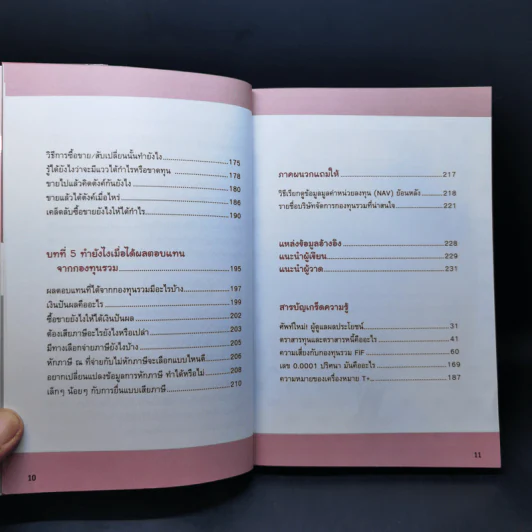 วิธีการซื้อขาย/สับเปลี่ยนนั้นทำยังไง 175
รู้ได้ยังไงว่าจะมีแววได้กำไรหรือขาดทุน 178
ขายไปแล้วคิดตังค์กันยังไง 180
ขายแล้วได้ตังค์เมื่อไหร่ 186
เคล็ดลับซื้อขายยังไงให้ได้กำไร 190
บทที่ 5 ทำยังไงเมื่อได้ผลตอบแทน
จากกองทุนรวม 195
ผลตอบแทนที่ได้จากกองทุนรวมมีอะไรบ้าง 197
เงินปันผลคืออะไร 199
ซื้อขายยังไงให้ได้เงินปันผล 202
ต้องเสียภาษีอะไรยังไงหรือเปล่า 205
มีทางเลือกจ่ายภาษียังไงบ้าง 205
หักภาษี ณ ที่จ่ายกับไม่หักภาษีจะเลือกแบบไหนดี 206
อยากเปลี่ยนแปลงข้อมูลการหักภาษี ทำได้หรือไม่ 208
เล็กๆ น้อยๆ กับการยื่นแบบเสียภาษี 210
10
ภาคผนวกแถมให้ 217
วิธีเรียกดูข้อมูลมูลค่าหน่วยลงทุน (NAV) ย้อนหลัง 218
รายชื่อบริษัทจัดการกองทุนรวมที่น่าสนใจ 221
แหล่งข้อมูลอ้างอิง 228
แนะนำผู้เขียน 229
แนะนำผู้วาด 231
สารบัญเกร็ดความรู้
ศัพท์ใหม่! ผู้ดูแลผลประโยชน์ 31
ตราสารทุนและตราสารหนี้คืออะไร 41
ความเสี่ยงกับกองทุนรวม FIF 60
เลข 0.0001 ปริศนา มันคืออะไร 169
ความหมายของเครื่องหมาย T+ 187
11